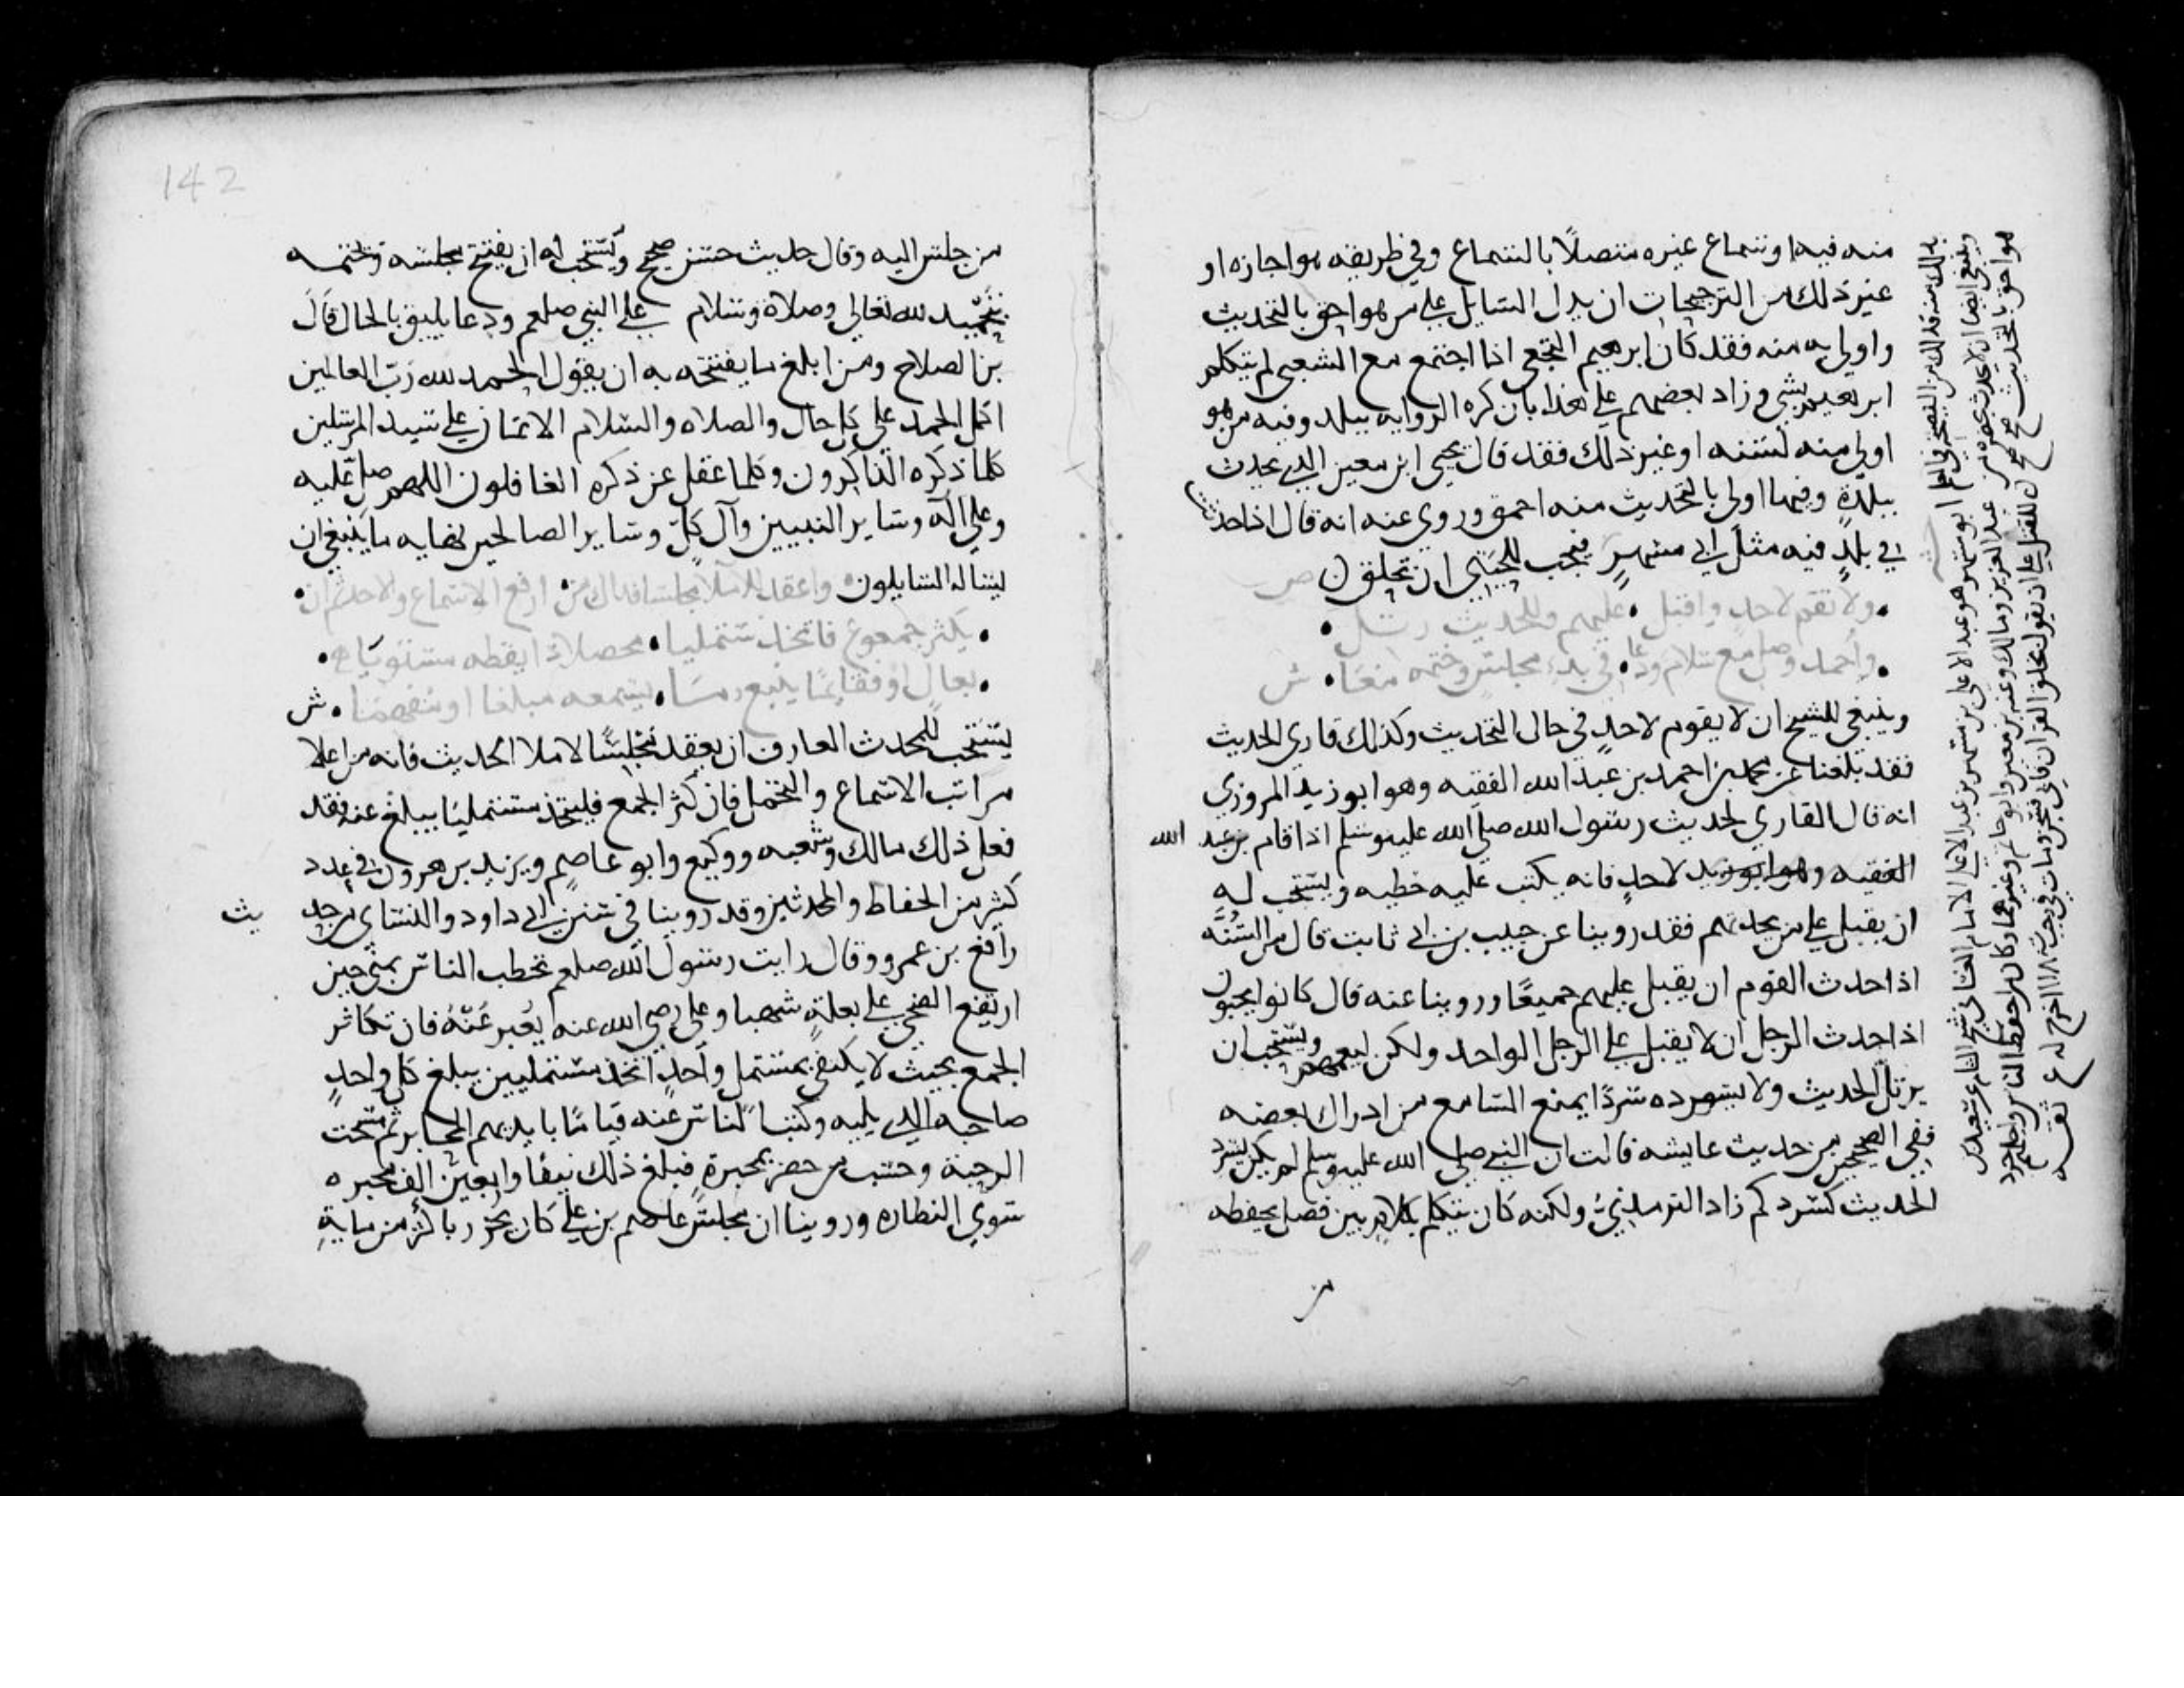 منه فيه او سماع غيره متصلا بالسماع وفي طريقه هو اجازه او
غير ذلك من الترجيحات ان يدل السايل علي من هو احق بالتحديث
واولي به منه فقد كان ابرهيم النخعي اذا اجتمع مع الشعبي لم يتكلم
ابرهيم بشي وزاد بعضهم علي هذا بان كره الروايه ببلد وفيه من هو
اولي منه لسنه او غير ذلك فقد قال يحيي ابن معين الذي يحدث
ببلدة وفيها اولي بالتحديث منه احمق وروي عنه انه قال اذا حدثت
في بلد فيه مثل ابي مسهر فيجب للحيتي ان تحلق ن ص
ولا تقم لاحد واقبل • عليهم وللحديث رتل •
• واحمد وصل مع سلام ودعا • في بدء مجلس وختمه معا • ش
وينبغي للشيخ ان لا يقوم لاحد في حال التحديث وكذلك قاري الحديث
فقد بلغنا عن محمد بن احمد بن عبد الله الفقيه وهو ابو زيد المروزي
انه قال القاري لحديث رسول الله صلي الله عليه وسلم اذا قام بن عبد الله
الفقيه وهو ابو زيد لاحد فانه يكتب عليه خطيه ويستحب له
ان يقبل علي من يحدثهم فقد روينا عن حبيب بن ابي ثابت قال من السُنَّه
اذا حدث القوم ان يقبل عليهم جميعًا وروينا عنه قال كانوا يحبون
اذا حدث الرجل ان لا يقبل علي الرجل الواحد ولكن ليعمهم ويستحب ان
يرتل الحديث ولا يسرده سردًا يمنع السامع من ادراك بعضه
ففي الصحيحين من حديث عايشه قالت ان النبي صلي الله عليه وسلم لم يكن يسرد
الحديث كسردكم زاد الترمذي ولكنه كان يتكلم بكلام بين فصل يحفظه
من
هو احق بالتحديث صح صح
142
من جلس اليه وقال حديث حسن صحيح ويستحب له ان يفتتح مجلسه ويختمه
بتحميد لله تعالي وصلاة وسلام علي النبي صلعم ودعا يليق بالحال قال
بن الصلاح ومن ابلغ ما يفتتحه به ان يقول الحمد لله رب العالمين
اكمل الحمد علي كل حال والصلاه والسلام الاتمان علي سيد المرسلين
كلما ذكره الذاكرون وكلما غفل عن ذكره الغافلون اللهم صل عليه
وعلي اله وساير النبيين وآل كل وساير الصالحين نهايه ما ينبغي ان
يساله السايلون واعقد للاملا مجلسا فذاك من • ارفع الاسماع والاخذ ثم ان •
• يكثر جموع فاتخذ مستمليا • محصلا ذا يقظه مستويا •
• بعال او فقايما يتبع ما • يسمعه مبلغا او مفهما • ش
يستحب للمحدث العارف ان يعقد مجلسًا لاملا الحديث فانه من اعلا
مراتب الاسماع والتحمل فان كثر الجمع فليتخذ مستمليا يبلغ عنه فقد
فعل ذلك مالك وشعبه ووكيع وابو عاصم ويزيد بن هرون في عدد
كثير من الحفاظ والمحدثين وقد روينا في سنن ابي داود والنساي من حديث
رافع بن عمرو وقال رايت رسول الله صلعم يخطب الناس بمني حين
ارتفع الضحي علي بغلة شهبا وعلي رضي الله عنه يعبر عنه فان تكاثر
الجمع بحيث لا يكتفي بمستمل واحد اتخذ مستمليين يبلغ كل واحد
صاحبه الذي يليه وكتب الناس عنه قياما بايديهم المحابر ثم مسحت
الرحبة وحسب من حضر بمحبرة فبلغ ذلك نيفا واربعين الف محبره
سوي النظاره وروينا ان مجلس عاصم بن علي كان يحزر باكثر من ماية